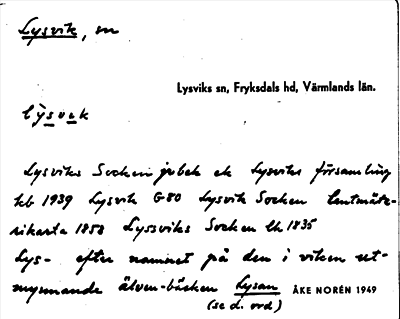 Lysvik, sn
Lysviks sn, Fryksdals hd, Värmlands län.
lysvek
Lysviks Socken jubek ek Lysviks församling
kb 1939 Lysvik G80 Lysvik Socken lantmäte-
rikarta 1858 Lyssviks Socken lk 1835
Lys- efter namnet på den i viken ut-
mynnande älven-bäcken Lysan ÅKE NORÉN 1949
(se d. ord)